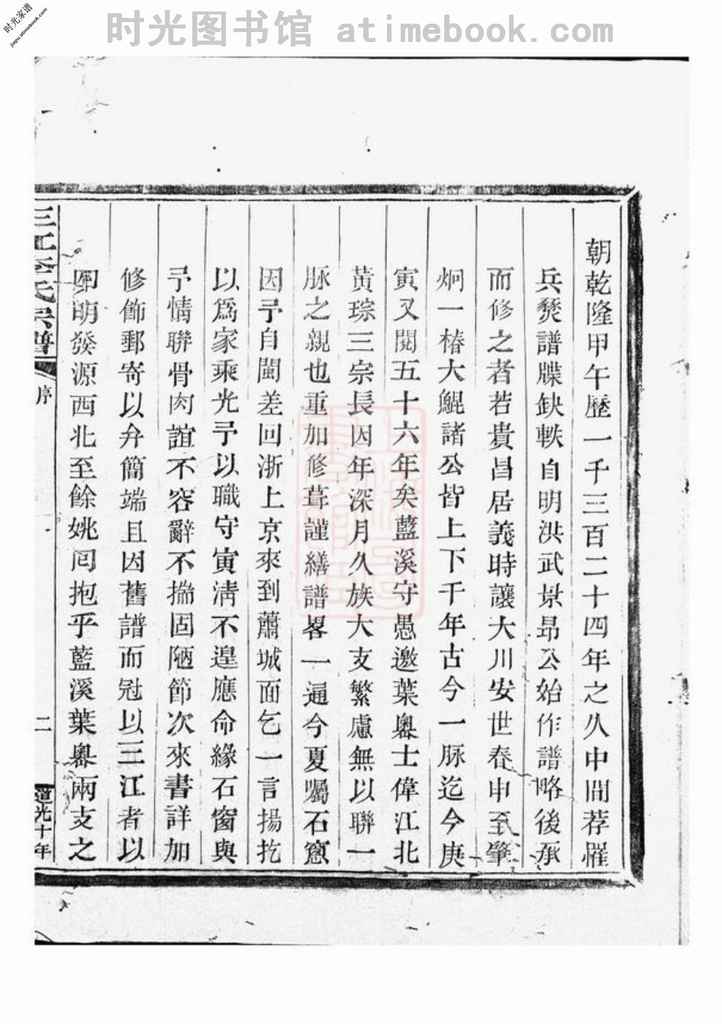 时光图书馆 atimebook.com
时光家谱
jiapu.atimebook.com
朝乾隆甲午歷一千三百二十四年之久中間荐罹
兵燹譜牒缺軼自明洪武景昂公始作譜略後承
而修之者若貴昌居義時讓大川安世春申至肇
炯一椿大鯤諸公皆上下千年古今一脈迄今庚
寅又閱五十六年矣藍溪守愚邀葉嶴士偉江北
黃琮三宗長因年深月久族大支繁慮無以聯一
脈之親也重加修葺謹繕譜畧一通今夏囑石窻
因予自閩差回浙上京來到蕭城面乞一言揚扢
以爲家乘光予以職守寅清不遑應命緣石窗與
予情聯骨肉誼不容辭不揣固陋節次來書詳加
修飾郵寄以弁簡端且因舊譜而冠以三江者以
四明發源西北至餘姚囘抱乎藍溪葉嶴兩支之
三江李氏宗譜
序
二
道光十年